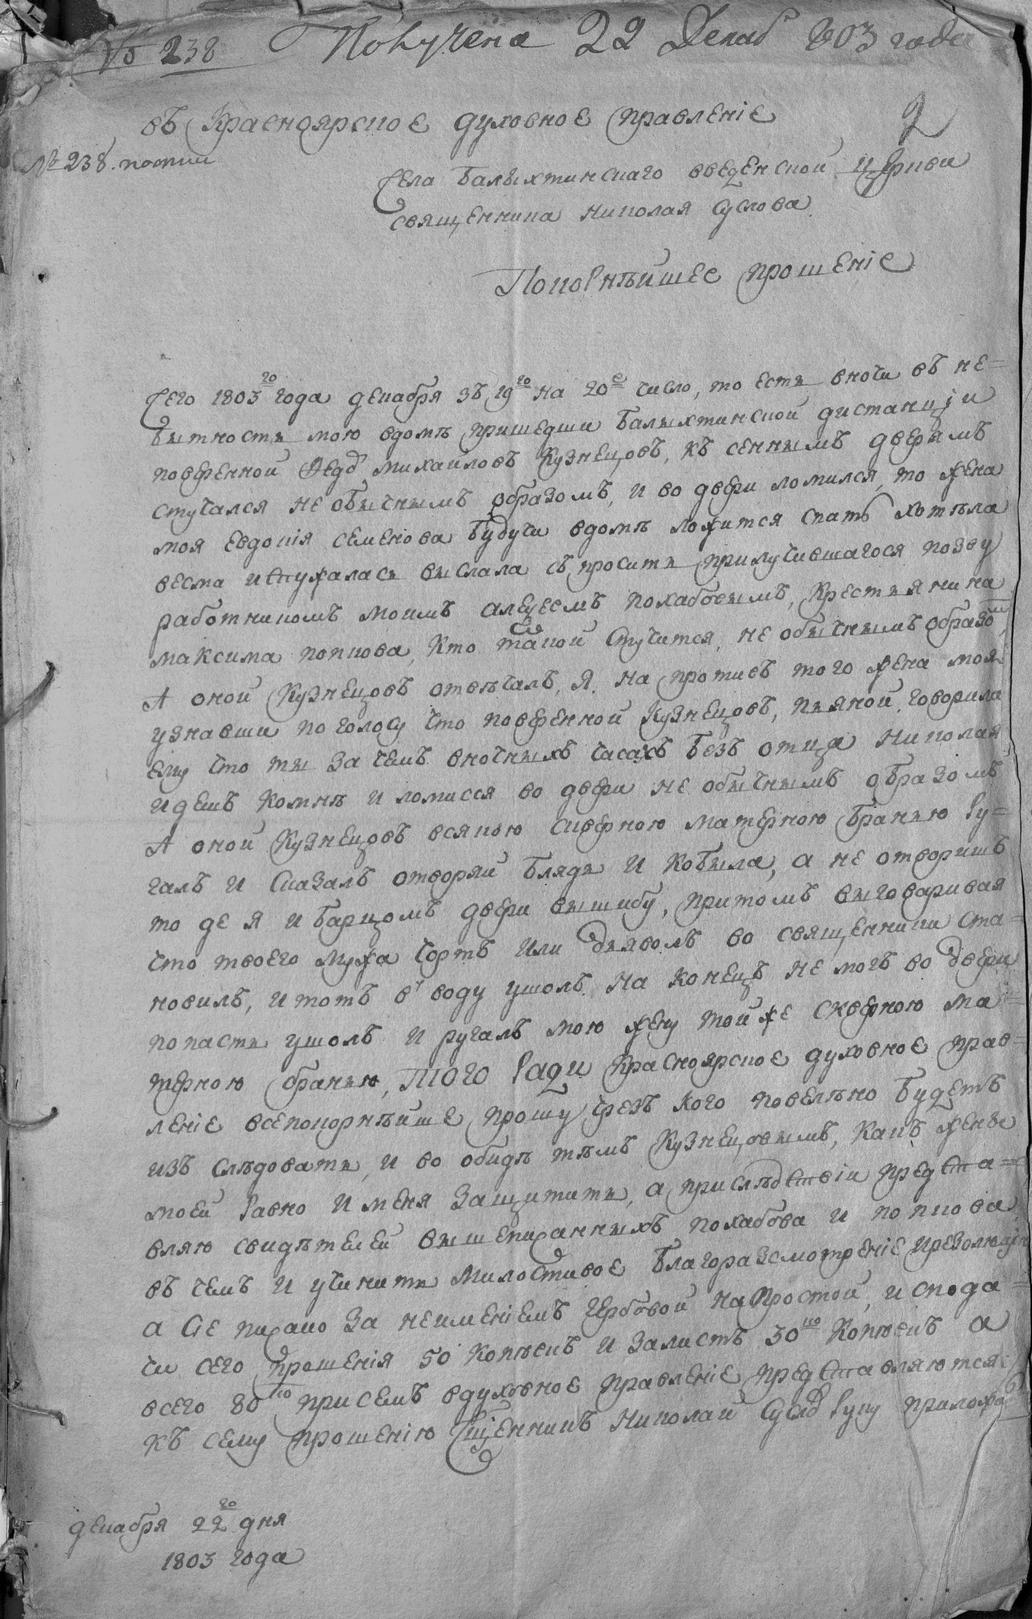 № 238 Получена 22 Декаб 803 года
въ Красноярское духовное правленіе
2
№ 238. почти
села Балыхтинскаго введенской церкви
священника николая Суслова
Покорнѣйшее прошеніе
Сего 1803го года декабря зъ 19го на 20е число, то есть вночи въ не=
бытность мою вдомѣ пришедши Балыхтинской дистанціи
повѣренной Федо Михайловъ Кузнецовъ, къ сеннымъ дверямъ
стучался не обычнымъ образомъ, и во двери ломился, то жена
моя Евдокія семенова будучи вдомѣ ложится спать хотѣла
весма испужалась выслала съпросить прилучившагося позву
работникомъ моимъ алексеемъ похабовымъ, крестьянина
максима попкова, Кто такой стучится, не обычнымъ образо,
А оной Кузнецовъ отвѣчалъ, Я. на противъ того жена моя
узнавши по голосу что повѣренной Кузнецовъ, пьяной, говорила
ему что ты за чемъ вночныхъ часахъ безъ отца Николая
идешъ комнѣ и ломисся во двери не обычнымъ образомъ
А оной Кузнецовъ всякою сквѣрною матѣрною бранью ру=
галъ и сказалъ отворяй блядь и кобыла, а не отворишъ
то де я и барцомъ двери вышибу, притомъ выговаривая
что твоего мужа чортъ или дьяволъ во священники ста=
новилъ, и тотъ в воду ушолъ. На конецъ не могъ во двери
попасть ушолъ и ругалъ мою жену той же сквѣрною ма=
тѣрною бранью, Того ради красноярское духовное прав=
леніе всепокорнѣйше прошу чрезъ кого повелѣно будетъ
изъ слѣдовать, и во обидѣ тѣмъ Кузнецовымъ, какъ женѣ
моей равно и меня защитить, а прислѣдствіи предста=
вляю свидѣтелей вышеписанныхъ похабова и попкова
въ чемъ и учинить Милостивое благоразсмотреніе ирезолюцію
а сіе писано за неименіемъ гербовой на простой, и спода=
чи сего прошенія 50 копѣекъ и залистъ 30но копѣекъ а
всего 80но присемъ вдуховное правленіе представляются.
къ сему прошенію Сщенникъ Николай Сусло руку приложи
декабря 22го дня
1803 года